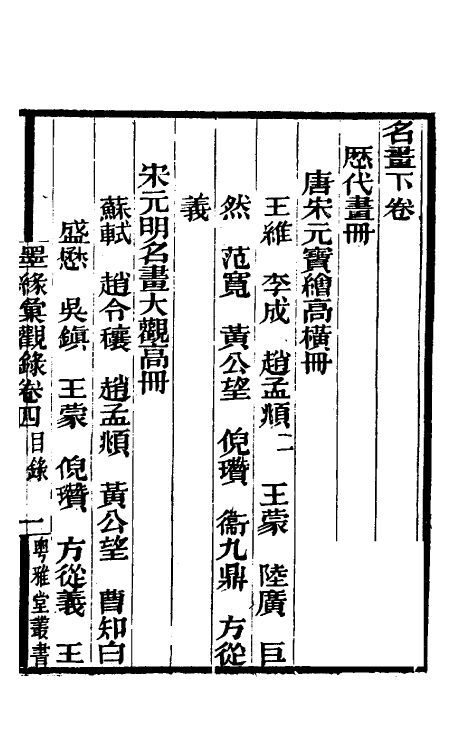 名畫下卷
歷代畫冊
唐宋元寶繪高橫冊
王維　李成　趙孟頫二　王蒙　陸廣　巨
然　范寬　黃公望　倪瓚　衞九鼎　方從
義
宋元明名畫大觀高冊
蘇軾　趙令穰　趙孟頫　黃公望　曹知白
盛懋　吳鎮　王蒙　倪瓚　方從義　王
墨緣彙觀錄卷四目錄　一　粵雅堂叢書